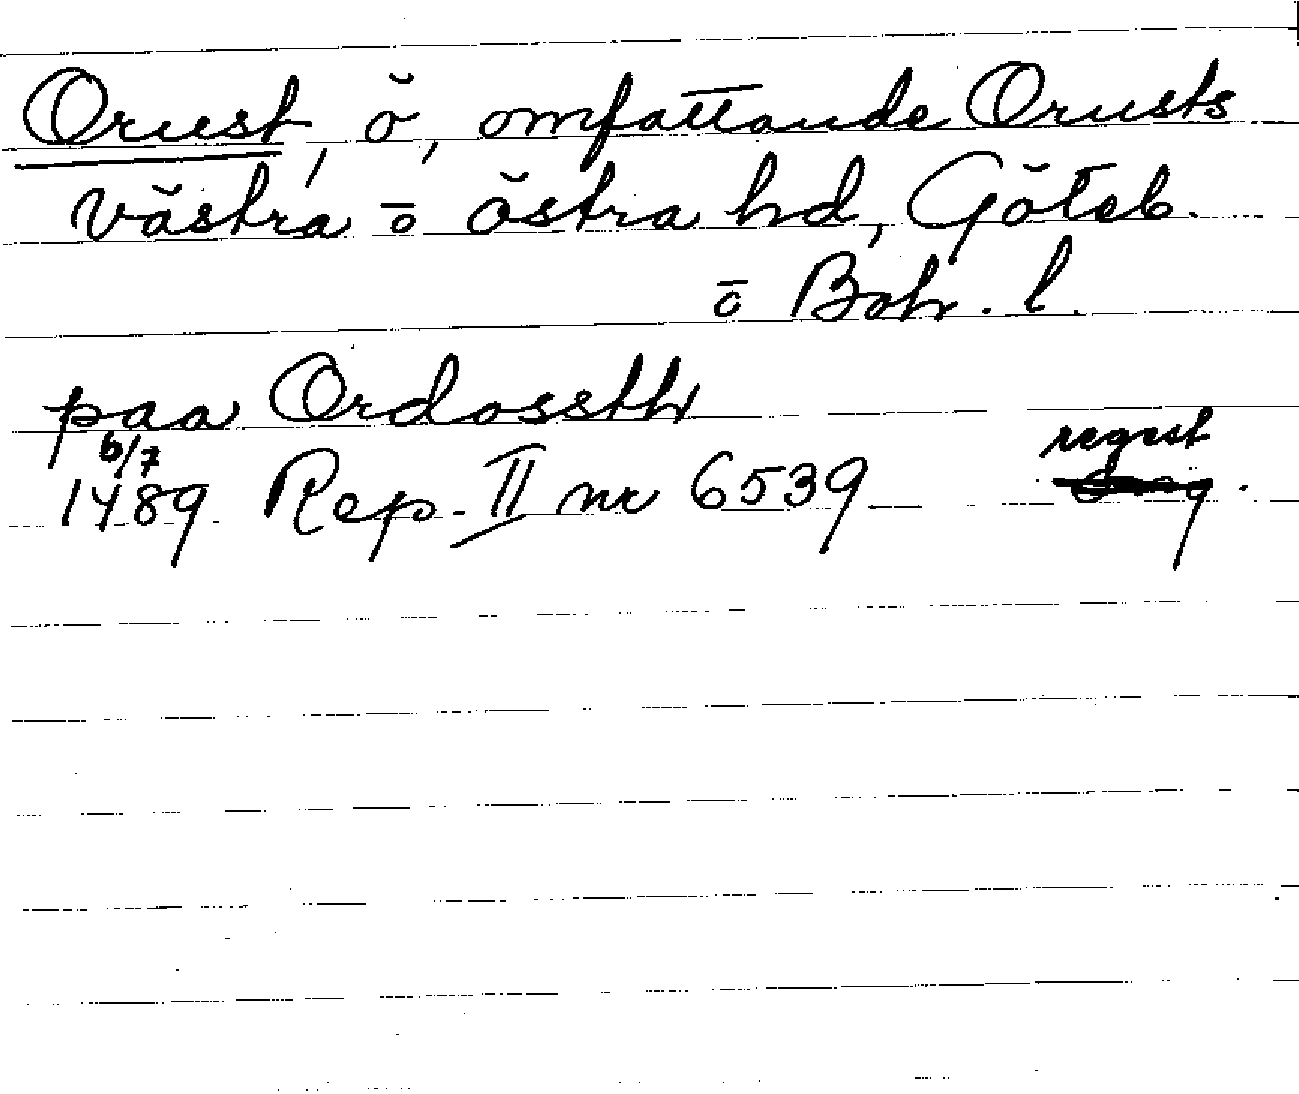 Orust, ö, omfattande Orusts
västra o östra hd, Göteb.
o Boh. l.
paa Ordossth
6/7
1489 Rep. II nr 6539 regest